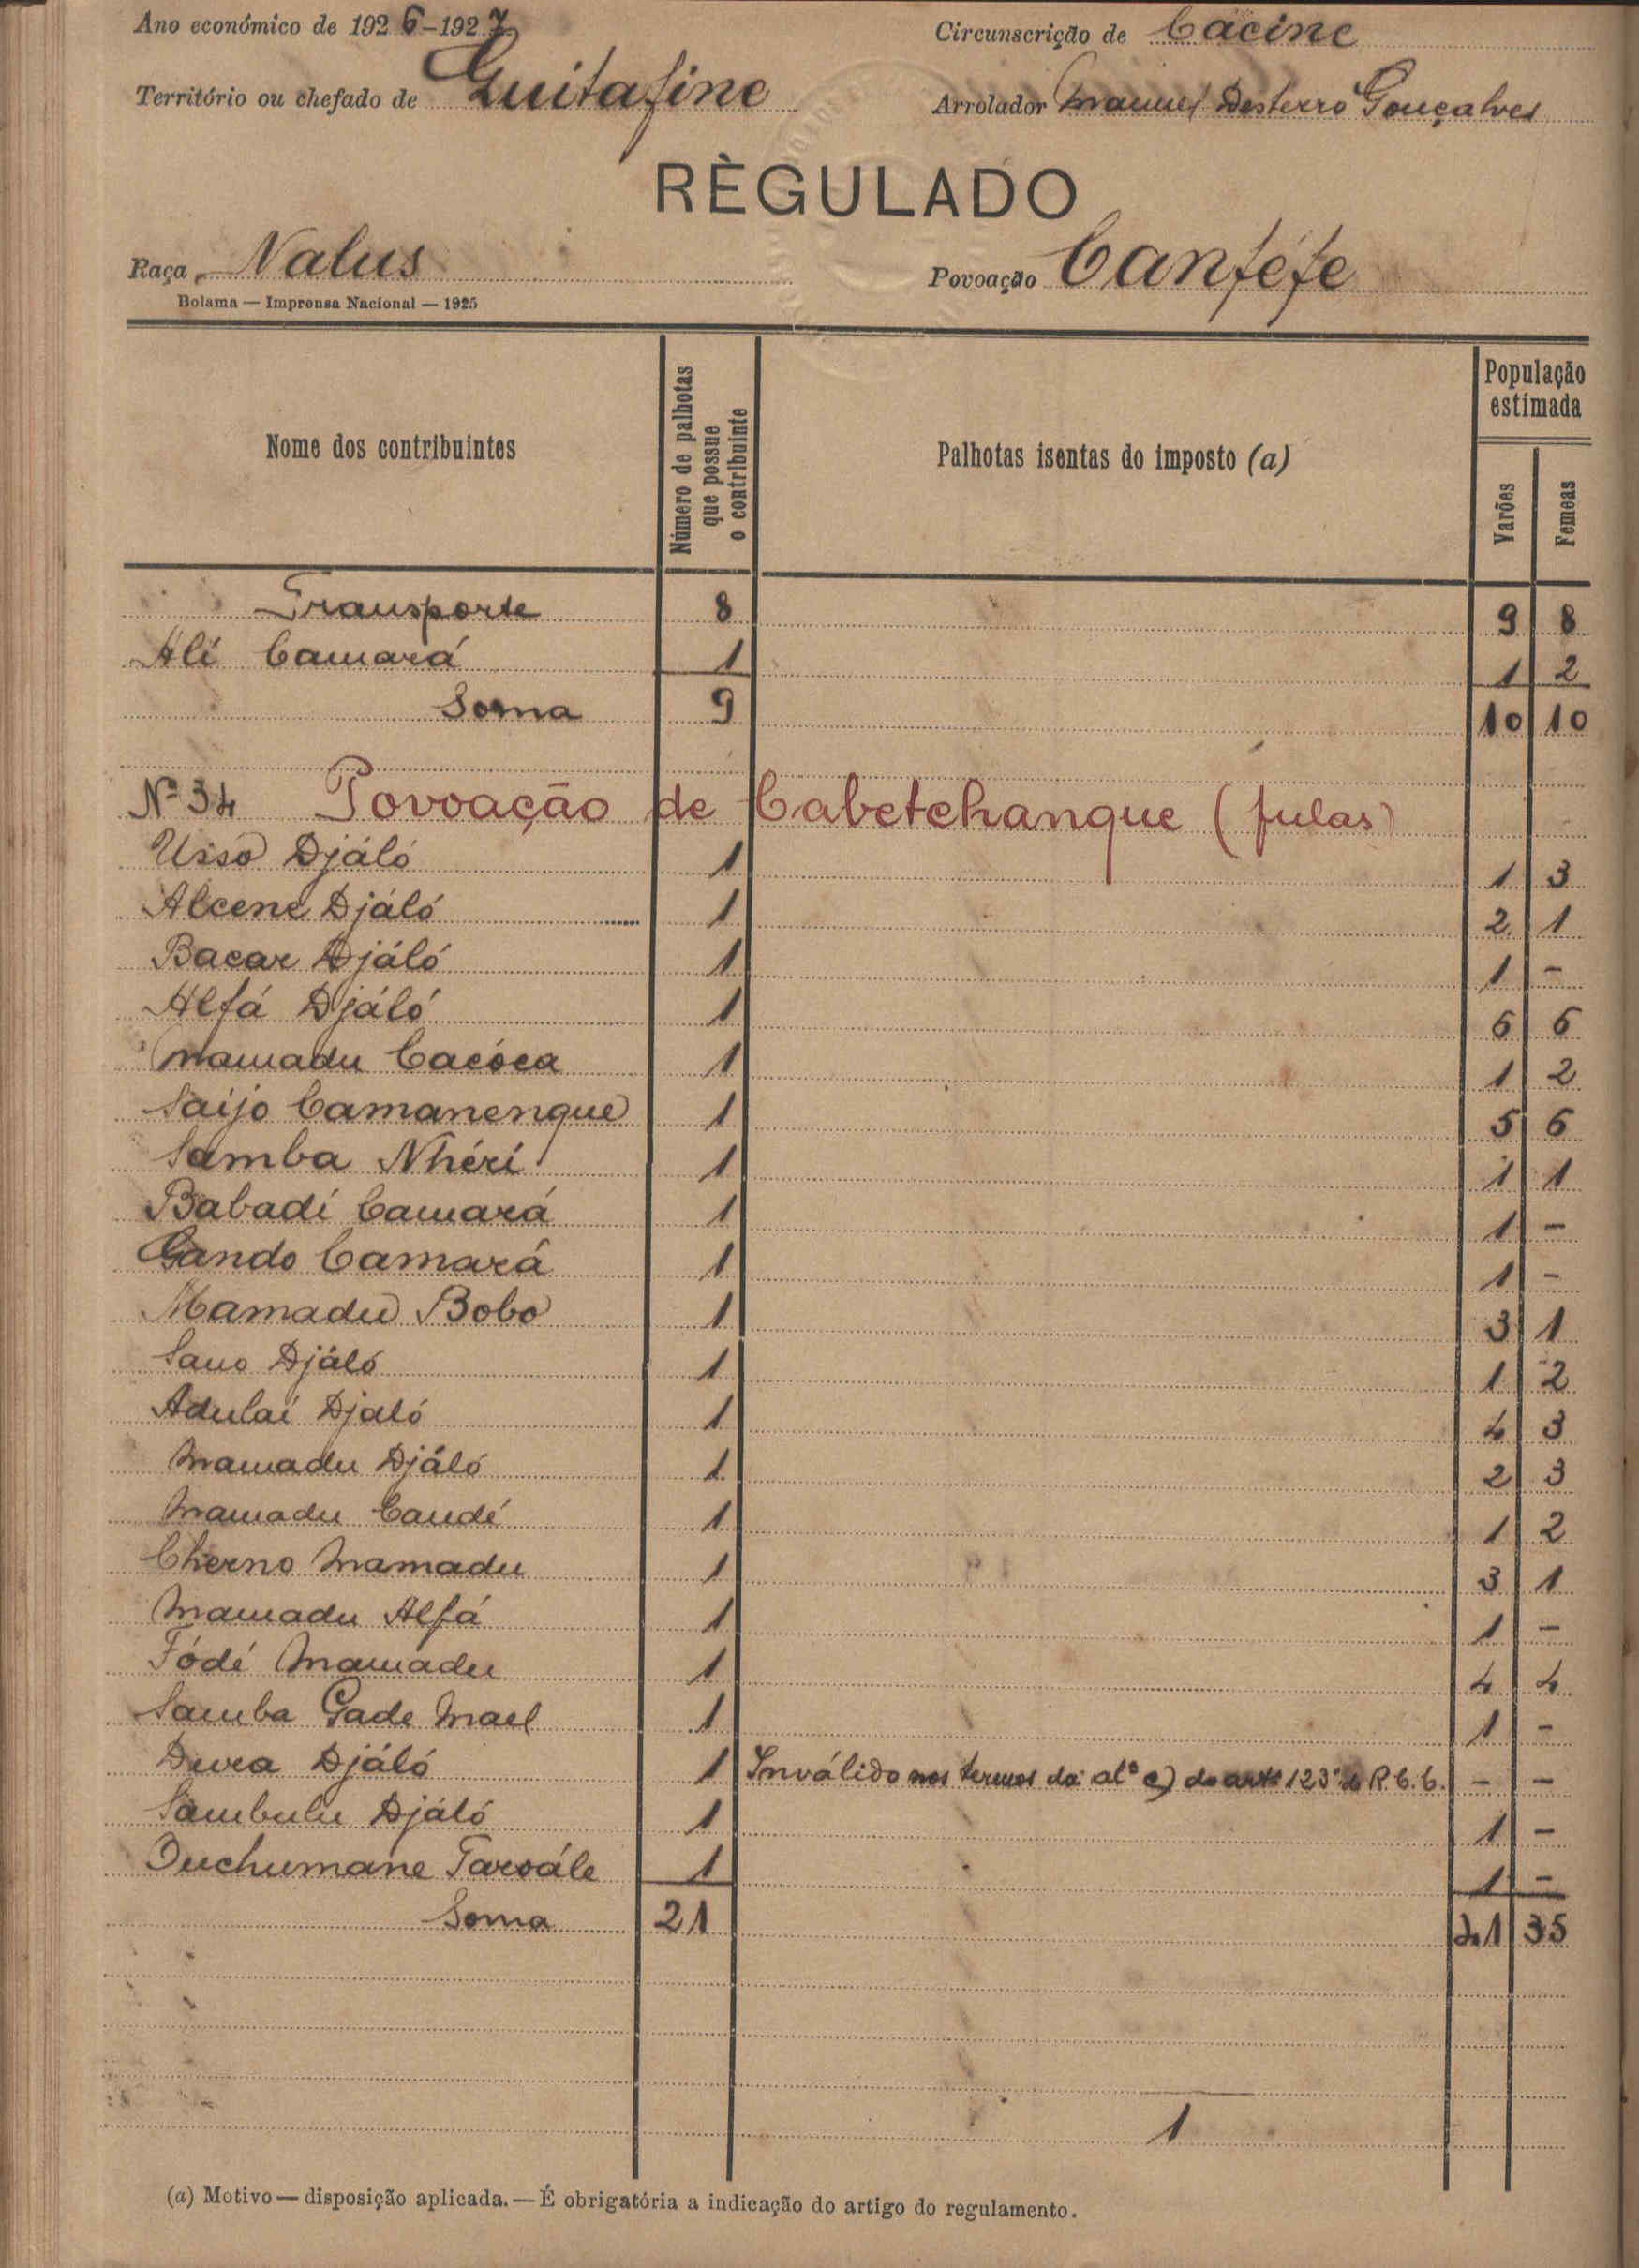 Ano económico de 1926-1927 Circunscrição de Cacine
Território ou chefado de Guitafine Arrolador Manuel Desterro Gonçalves
RÈGULADO
Raça Nalus Povoação Canféfe
Bolama — Imprensa Nacional — 1925
Nome dos contribuintes
Número de palhotas que possue o contribuinte
Palhotas isentas do imposto (a)
População estimada
Varões
Femeas
Transporte 8 9 8
Alí Camará 1 1 2
Soma 9 10 10
Nº 34 Povoação de Cabetchanque (fulas)
Usso Djáló 1 1 3
Alcene Djáló 1 2 1
Bacar Djáló 1 1 -
Alfá Djáló 1 6 6
Mamadu Cacóca 1 1 2
Saijo Camanenque 1 5 6
Samba Nhéri 1 1 1
Babadí Camará 1 1 -
Gando Camará 1 1 -
Mamadu Bobo 1 3 1
Sauo Djáló 1 1 2
Adulai Djaló 1 4 3
Mamadu Djáló 1 2 3
Mamadu Candé 1 1 2
Cherno Mamadu 1 3 1
Mamadu Alfá 1 1 -
Fódé Mamadu 1 4 4
Samba Gade Mael 1 1 -
Dura Djáló 1 Inválido nos termos da alª e) do artº 123º do R.C.C. - -
Sambulu Djáló 1 1 -
Duchumane Taroále 1 1 -
Soma 21 21 35
1
(a) Motivo — disposição aplicada. — É obrigatória a indicação do artigo do regulamento.